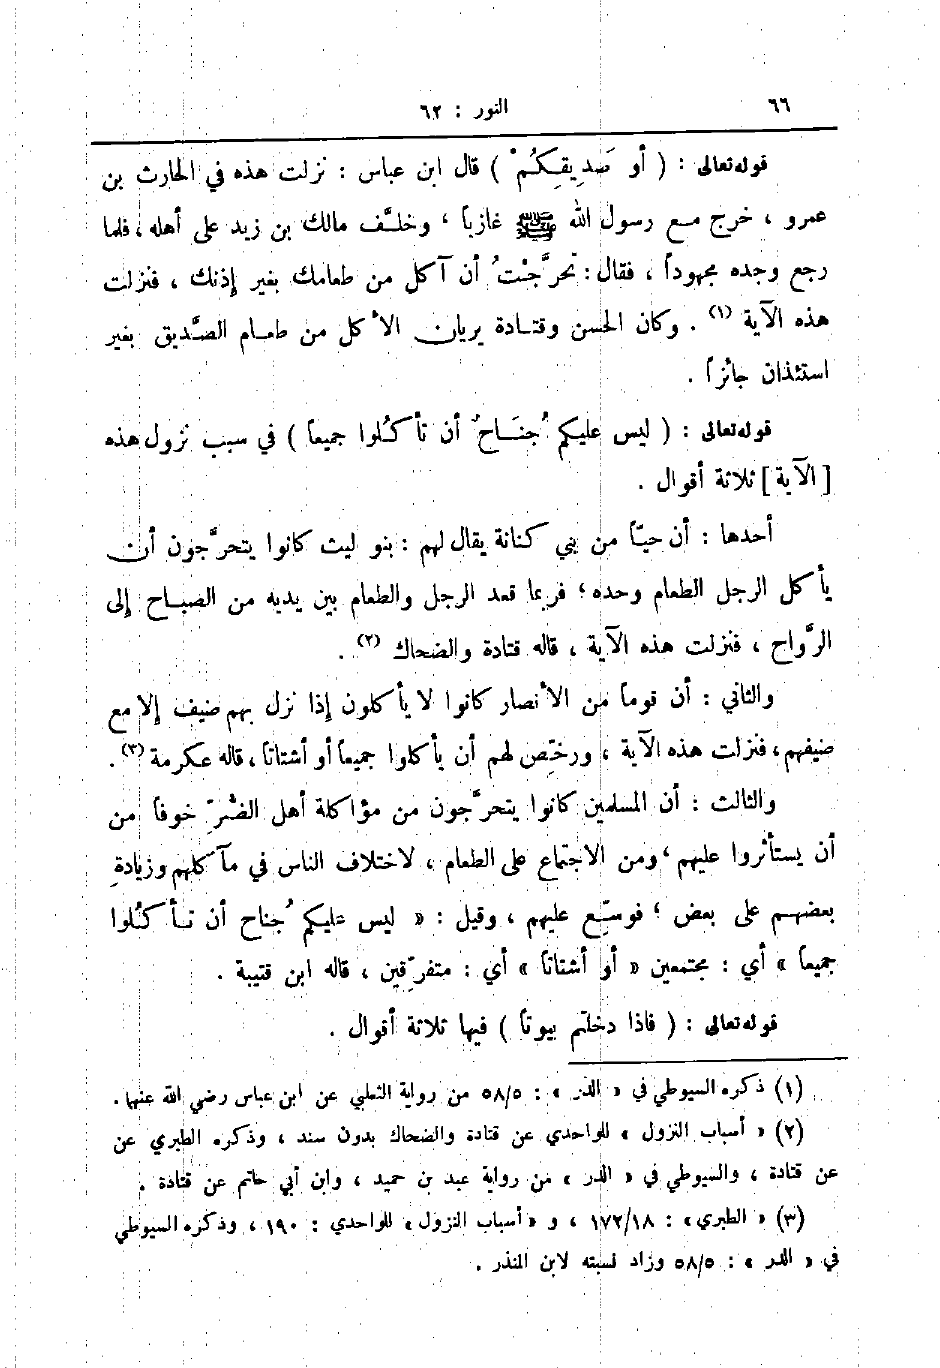 ٦٦
النور : ٦٢
قوله تعالى : ( أو صَدِيقِكُمْ ) قال ابن عباس : نزلت هذه في الحارث بن
عمرو ، خرج مع رسول الله ﷺ غازياً ، وخلَّف مالك بن زيد على أهله ، فلما
رجع وجده مجهوداً ، فقال : تحرَّجْتُ أن آكل من طعامك بغير إذنك ، فنزلت
هذه الآية (١) . وكان الحسن وقتادة يريان الأكل من طعام الصَّديق بغير
استئذان جائزاً .
قوله تعالى : ( ليس عليكم جُنَاحٌ أن تأكُلوا جميعاً ) في سبب نزول هذه
[ الآية ] ثلاثة أقوال .
أحدها : أن حيّاً من بني كنانة يقال لهم : بنو ليث كانوا يتحرَّجون أن
يأكل الرجل الطعام وحده ؛ فربما قعد الرجل والطعام بين يديه من الصباح إلى
الرَّواح ، فنزلت هذه الآية ، قاله قتادة والضحاك (٢) .
والثاني : أن قوماً من الأنصار كانوا لا يأكلون إذا نزل بهم ضيف إلا مع
ضيفهم ، فنزلت هذه الآية ، ورخِّص لهم أن يأكلوا جميعاً أو أشتاتاً ، قاله عكرمة (٣) .
والثالث : أن المسلمين كانوا يتحرَّجون من مؤاكلة أهل الضُّرِّ خوفاً من
أن يستأثروا عليهم ، ومن الاجتماع على الطعام ، لاختلاف الناس في مآكلهم وزيادةِ
بعضهم على بعض ؛ فوسِّع عليهم ، وقيل : « ليس عليكم جُناح أن تأكُلوا
جميعاً » أي : مجتمعين « أو أشتاتاً » أي : متفرِّقين ، قاله ابن قتيبة .
قوله تعالى : ( فاذا دخلتم بيوتاً ) فيها ثلاثة أقوال .
(١) ذكره السيوطي في « الدر » : ٥٨/٥ من رواية الثعلبي عن ابن عباس رضي الله عنهما .
(٢) « أسباب النزول » للواحدي عن قتادة والضحاك بدون سند ، وذكره الطبري عن
عن قتادة ، والسيوطي في « الدر » من رواية عبد بن حميد ، وابن أبي حاتم عن قتادة .
(٣) « الطبري » : ١٧٢/١٨ ، و « أسباب النزول » للواحدي : ١٩٠ ، وذكره السيوطي
في « الدر » : ٥٨/٥ وزاد نسبته لابن المنذر .